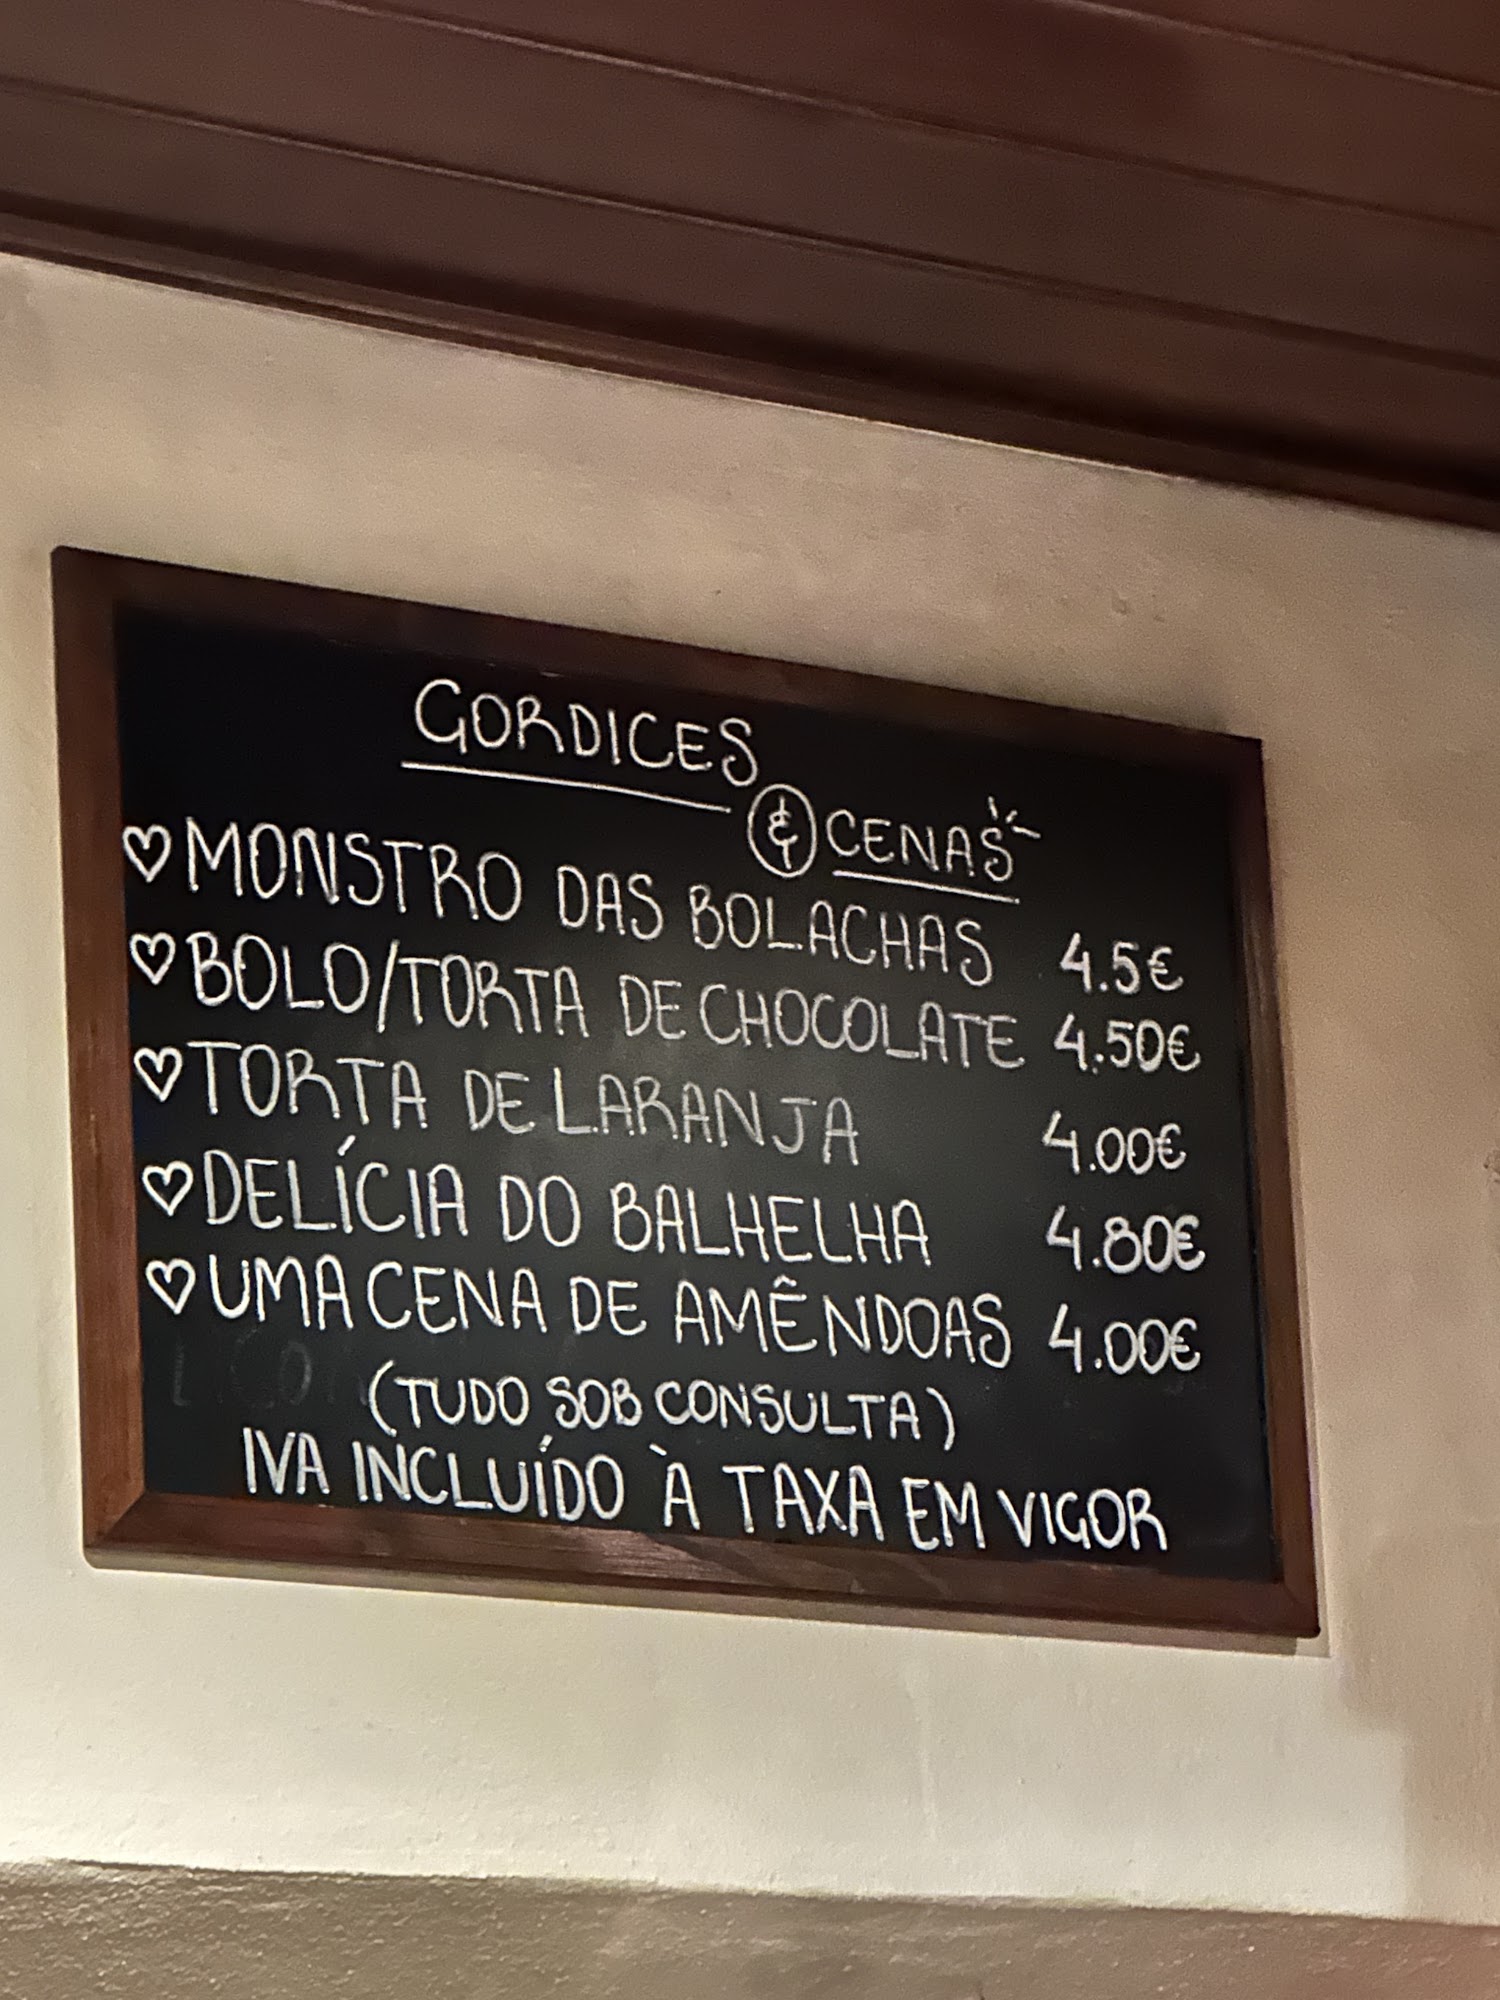 GORDICES
& CENAS
♡ MONSTRO DAS BOLACHAS 4.5€
♡ BOLO/TORTA DE CHOCOLATE 4.50€
♡ TORTA DE LARANJA 4.00€
♡ DELÍCIA DO BALHELHA 4.80€
♡ UMA CENA DE AMÊNDOAS 4.00€
(TUDO SOB CONSULTA)
IVA INCLUÍDO À TAXA EM VIGOR